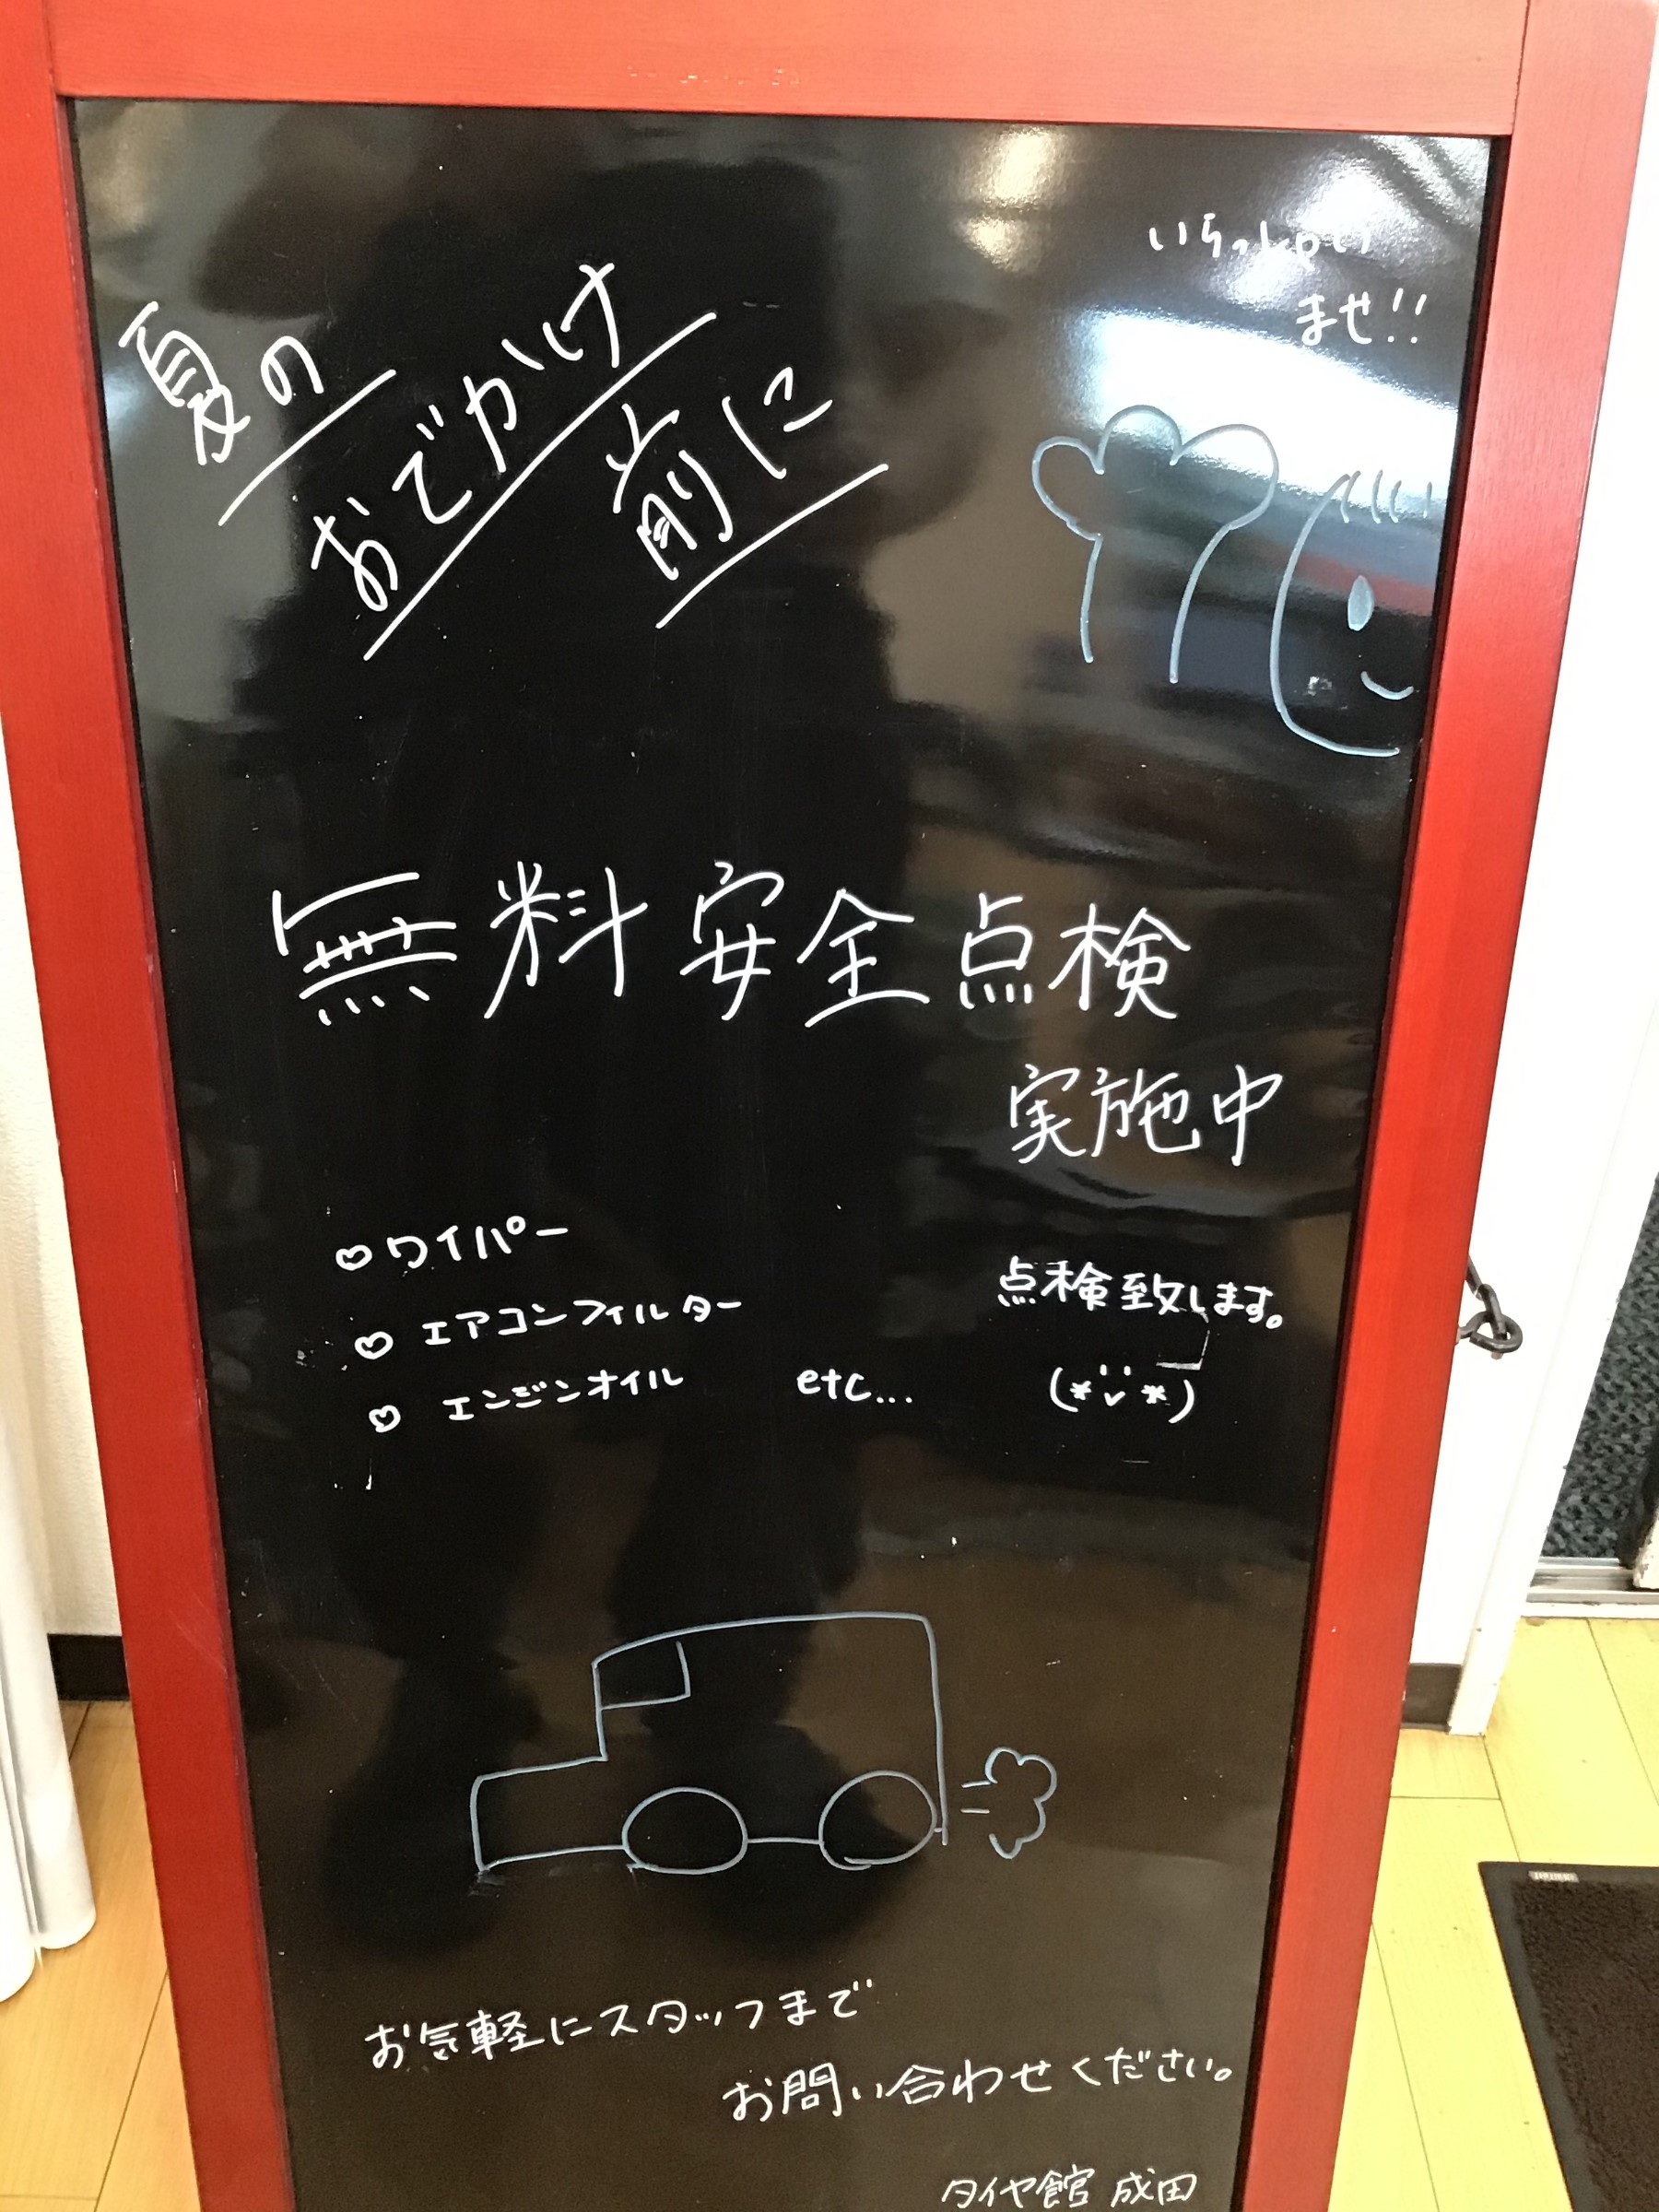 いらっしゃい
ませ!!
夏の
おでかけ
前に
無料安全点検
実施中
ワイパー
エアコンフィルター
エンジンオイル etc...
点検致します。
(*ˇᵕˇ*)
お気軽にスタッフまで
お問い合わせください。
タイヤ館 成田